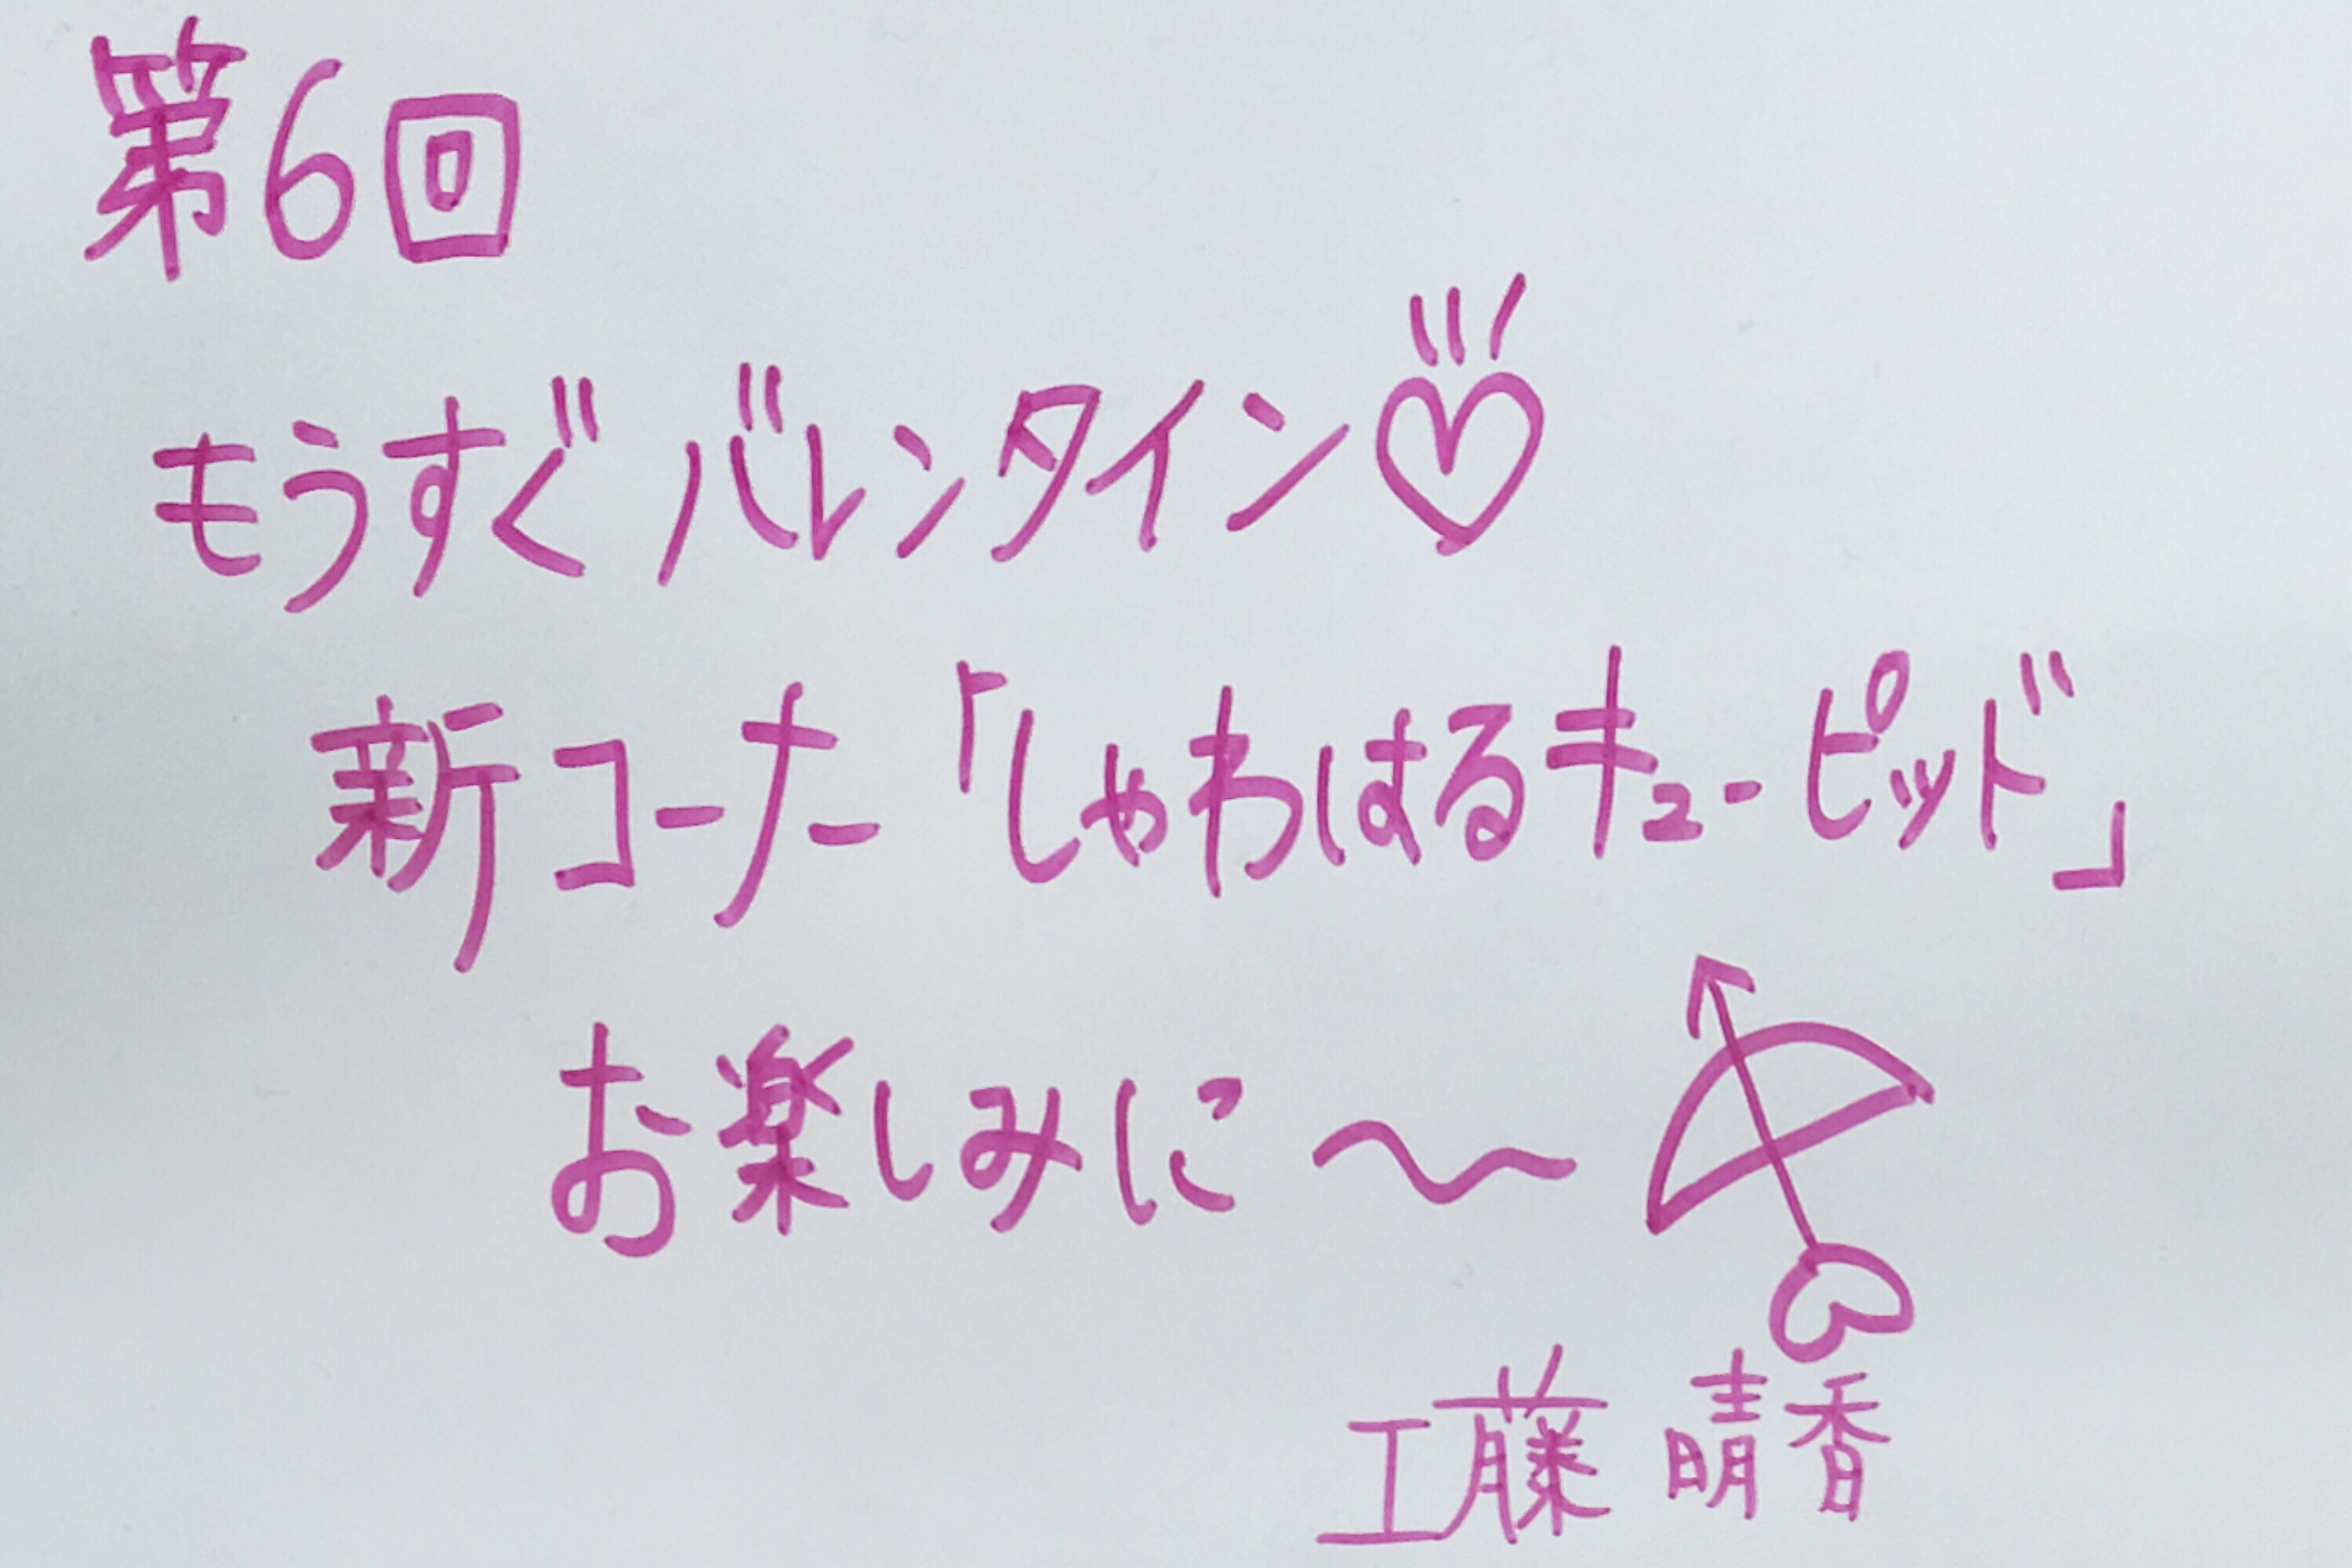 第6回
もうすぐバレンタイン♡
新コーナー「しゃわはるキューピッド」
お楽しみに〜
工藤晴香